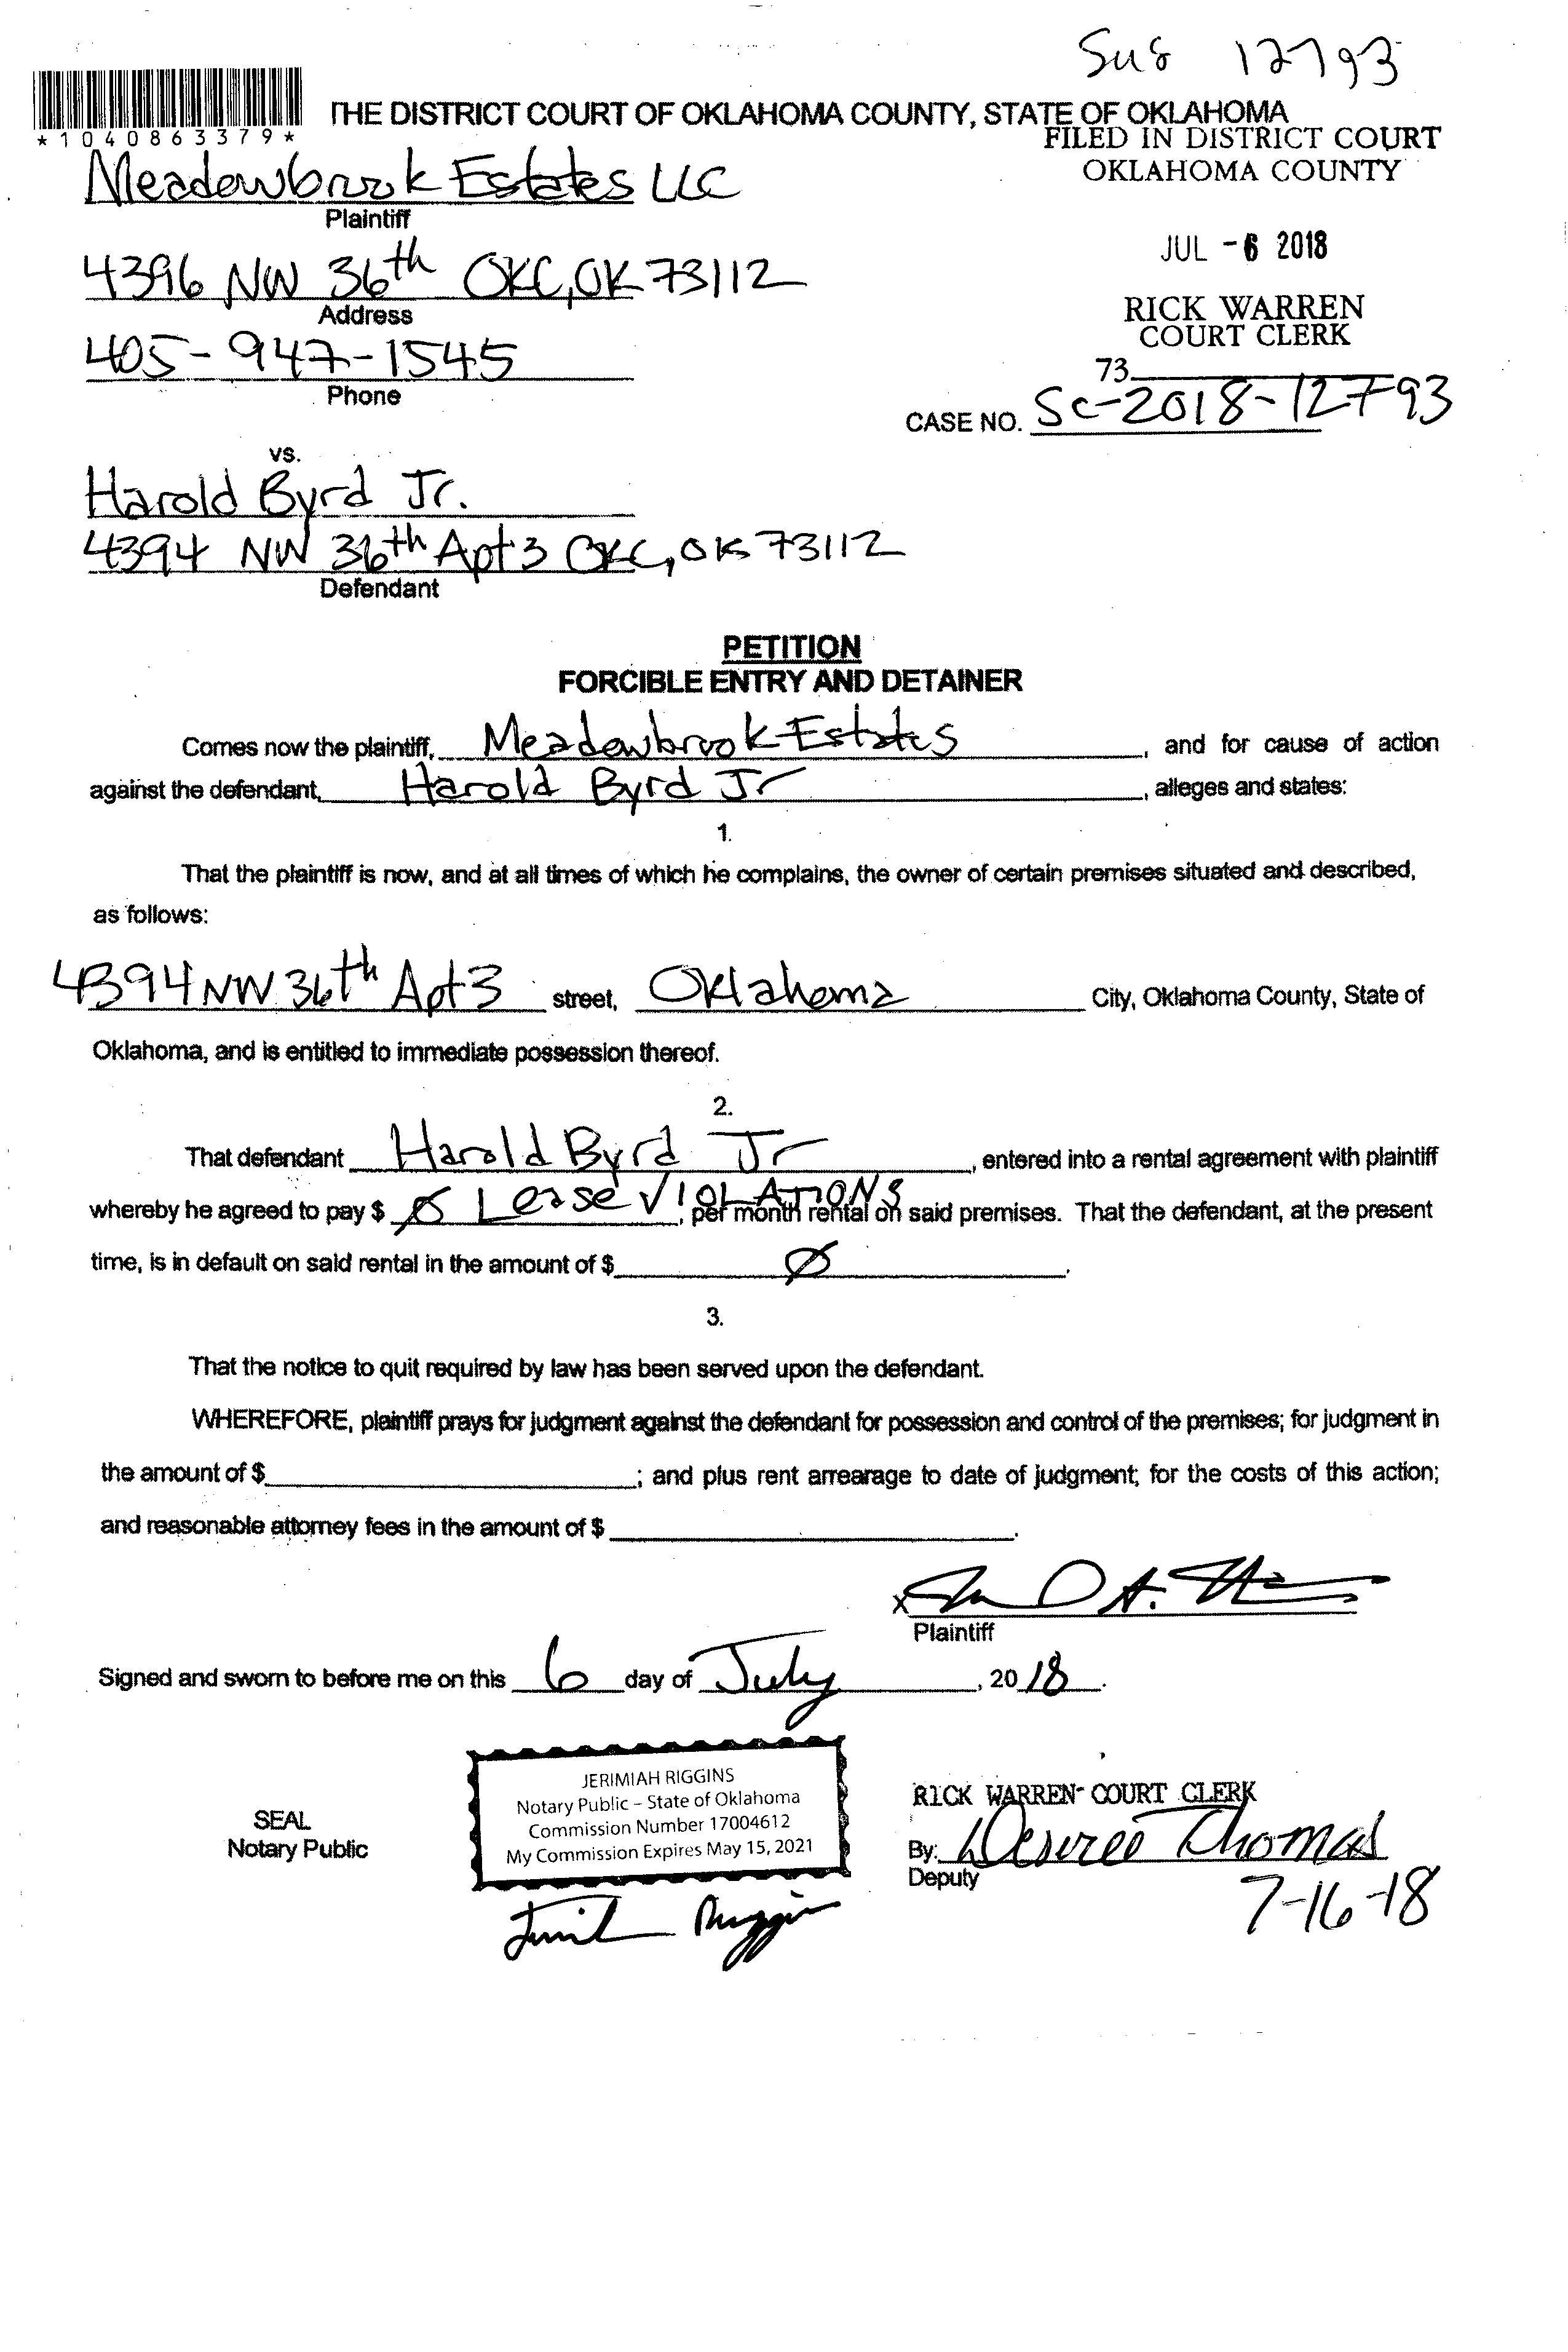 12793
*1040863379*
THE DISTRICT COURT OF OKLAHOMA COUNTY, STATE OF OKLAHOMA
FILED IN DISTRICT COURT
OKLAHOMA COUNTY
Meadowbrook Estates LLC
Plaintiff
JUL -6 2018
4396 NW 36th OKC, OK 73112
Address
RICK WARREN
COURT CLERK
405-947-1545
Phone
73
CASE NO. SC-2018-12793
vs.
Harold Byrd Jr.
4394 NW 36th Apt 3 OKC, OK 73112
Defendant
PETITION
FORCIBLE ENTRY AND DETAINER
Comes now the plaintiff, Meadowbrook Estates, and for cause of action
against the defendant, Harold Byrd Jr, alleges and states:
1.
That the plaintiff is now, and at all times of which he complains, the owner of certain premises situated and described,
as follows:
4394 NW 36th Apt 3 street, Oklahoma City, Oklahoma County, State of
Oklahoma, and is entitled to immediate possession thereof.
2.
That defendant Harold Byrd Jr, entered into a rental agreement with plaintiff
whereby he agreed to pay $ Ø Lease VIOLATIONS, per month rental on said premises. That the defendant, at the present
time, is in default on said rental in the amount of $ Ø.
3.
That the notice to quit required by law has been served upon the defendant.
WHEREFORE, plaintiff prays for judgment against the defendant for possession and control of the premises; for judgment in
the amount of $; and plus rent arrearage to date of judgment; for the costs of this action;
and reasonable attorney fees in the amount of $.
X
Plaintiff
Signed and sworn to before me on this 6 day of July, 2018.
JERIMIAH RIGGINS
Notary Public – State of Oklahoma
Commission Number 17004612
My Commission Expires May 15, 2021
SEAL
Notary Public
RICK WARREN-COURT CLERK
By: Desiree Thomas
Deputy
7-16-18